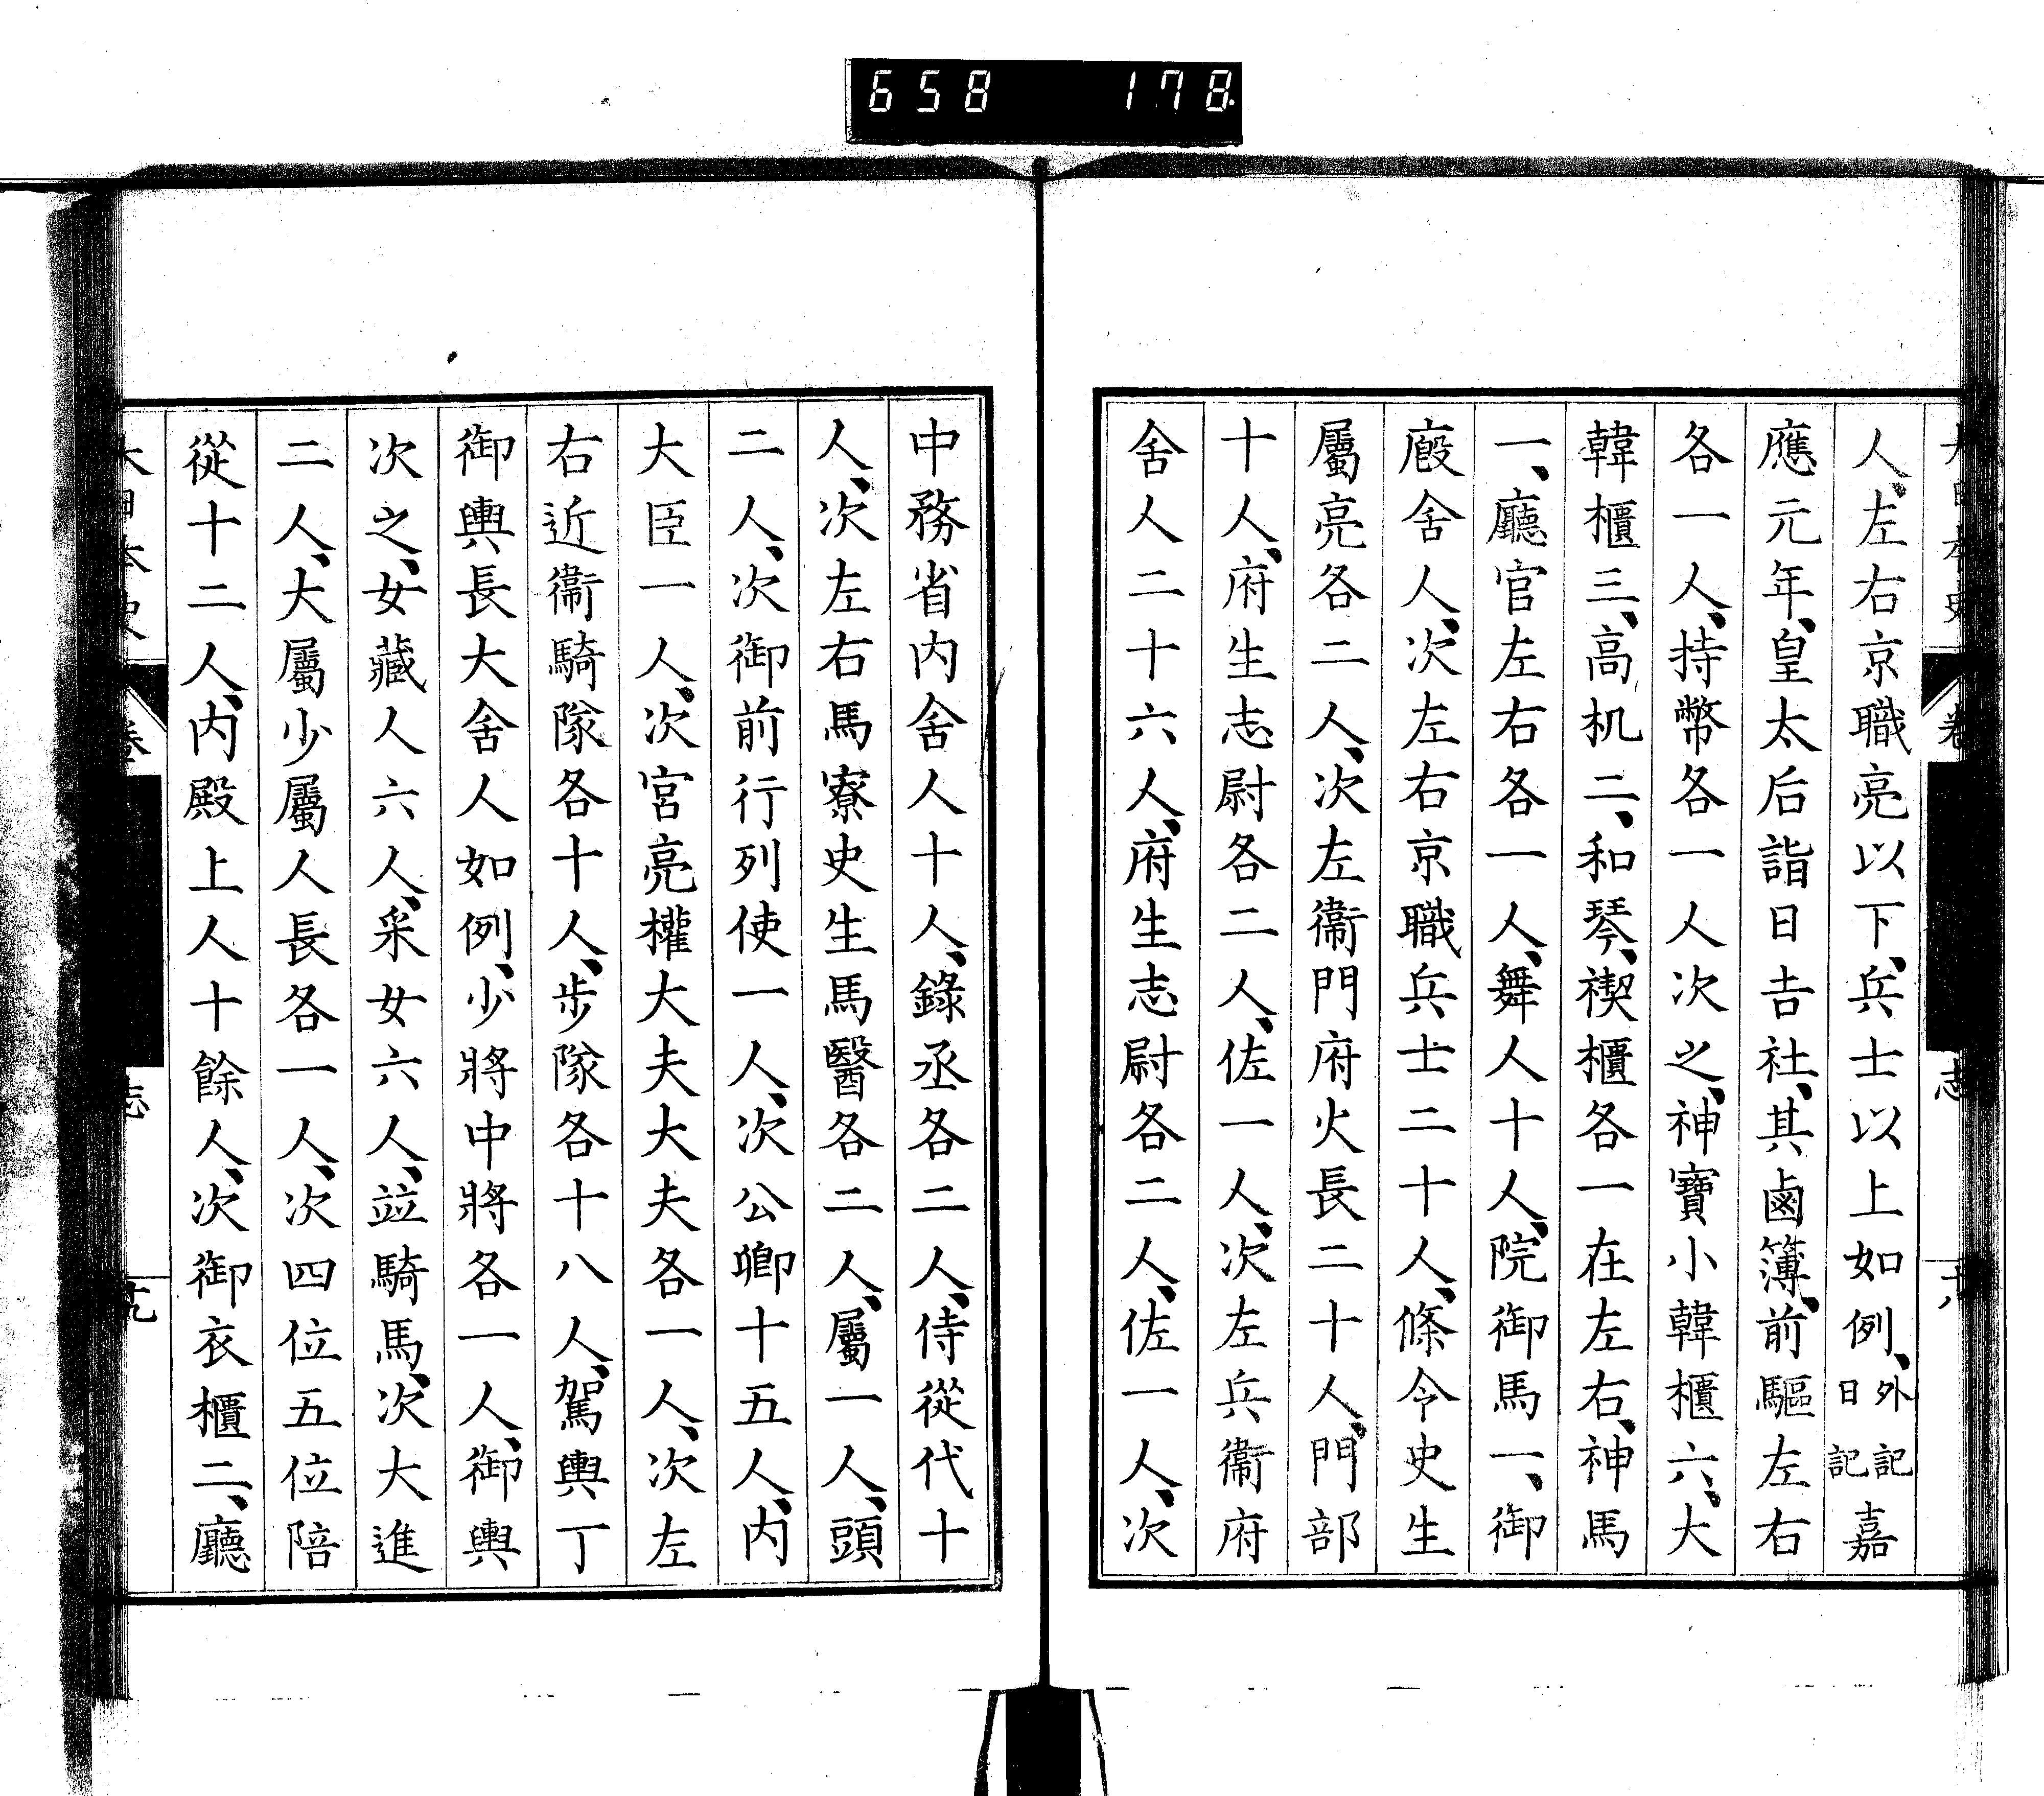 658 178
人、左右京職亮以下、兵士以上如例、外記日記嘉
應元年、皇太后詣日吉社、其鹵簿、前驅左右
各一人、持幣各一人次之、神寶小韓櫃六、大
韓櫃三、高机二、和琴、禊櫃各一在左右、神馬
一、廳官左右各一人、舞人十人、院御馬一、御
廄舍人、次左右京職兵士二十人、條令史生
屬亮各二人、次左衞門府火長二十人、門部
十人、府生志尉各二人、佐一人、次左兵衞府
舍人二十六人、府生志尉各二人、佐一人、次
中務省内舍人十人、錄丞各二人、侍從代十
人、次左右馬寮史生馬醫各二人、屬一人、頭
二人、次御前行列使一人、次公卿十五人、内
大臣一人、次宮亮權大夫大夫各一人、次左
右近衞騎隊各十人、步隊各十八人、駕輿丁
御輿長大舍人如例、少將中將各一人、御輿
次之、女藏人六人、采女六人、竝騎馬、次大進
二人、大屬少屬人長各一人、次四位五位陪
從十二人、内殿上人十餘人、次御衣櫃二、廳